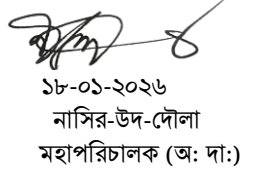 ১৮-০১-২০২৬
নাসির-উদ-দৌলা
মহাপরিচালক (অ: দা:)